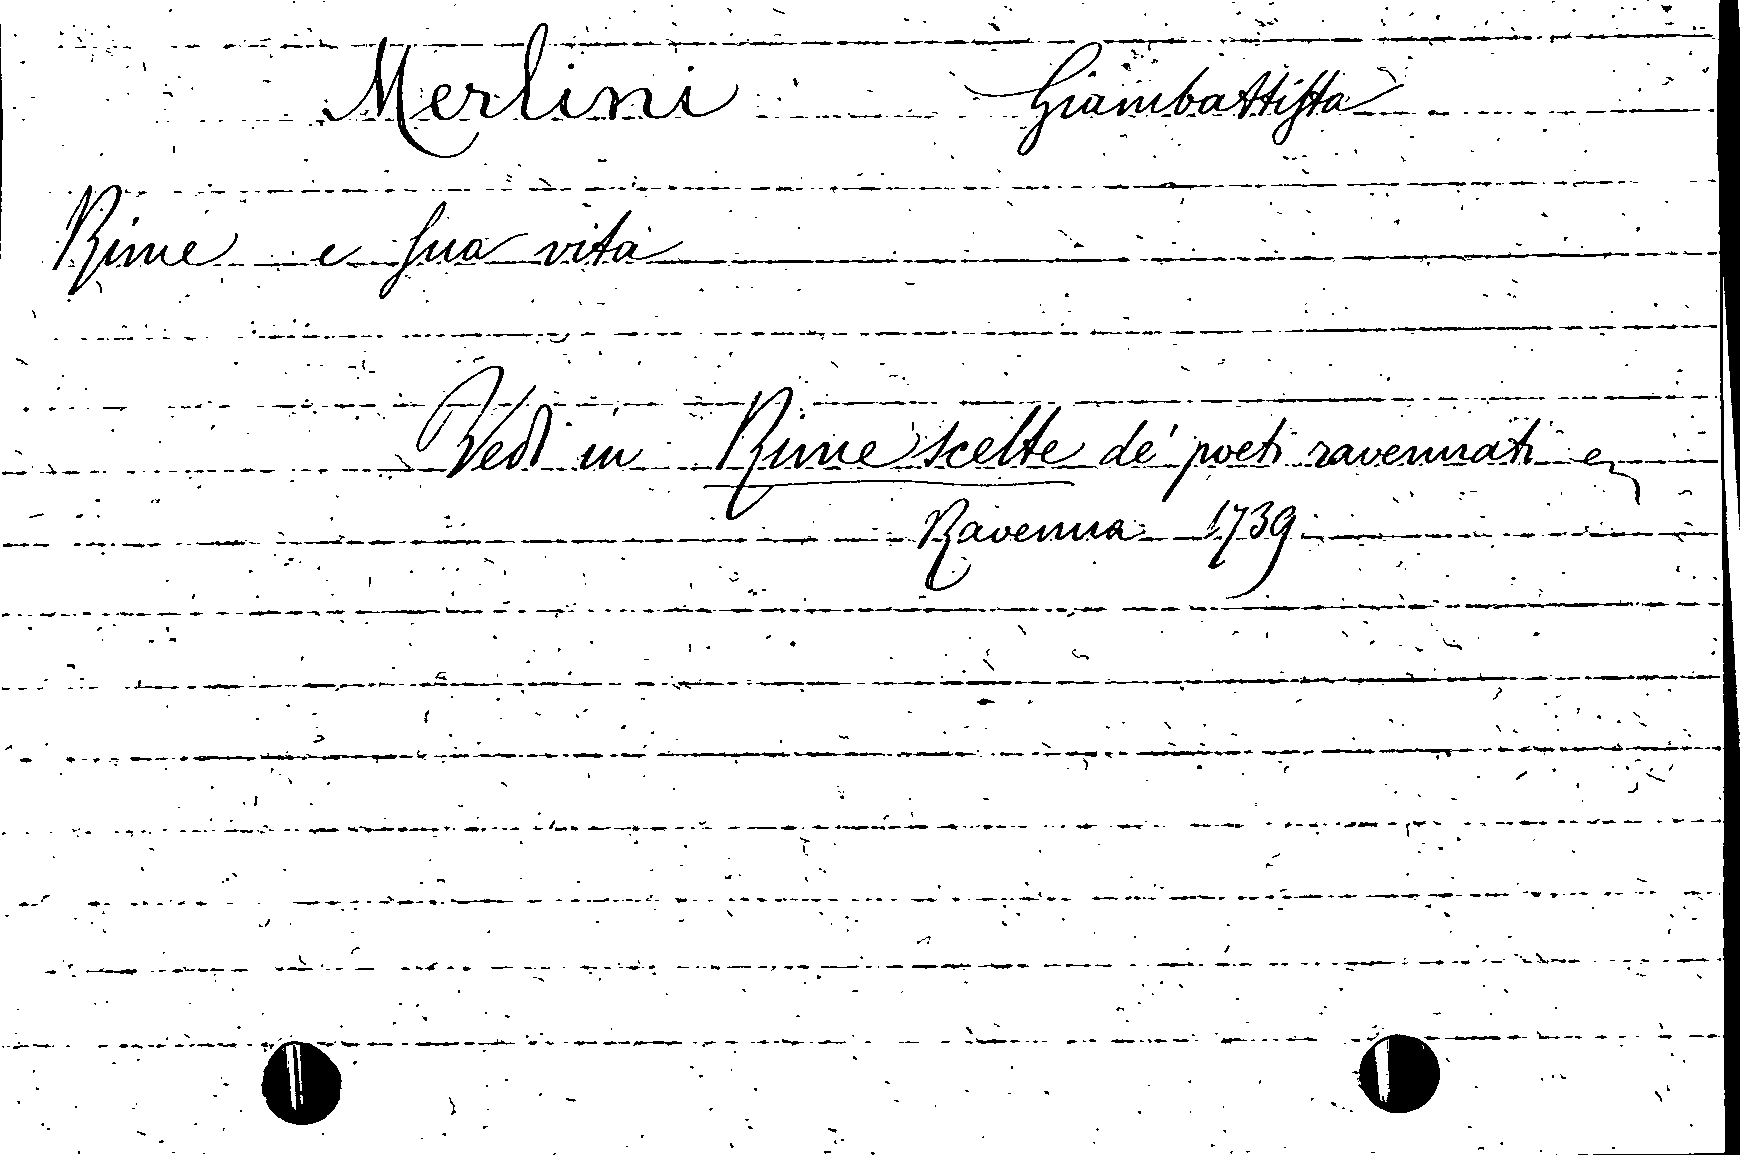 Merlini Giambattista
Rime e sua vita
Vedi in Rime scelte de' poeti ravennati
Ravenna 1739